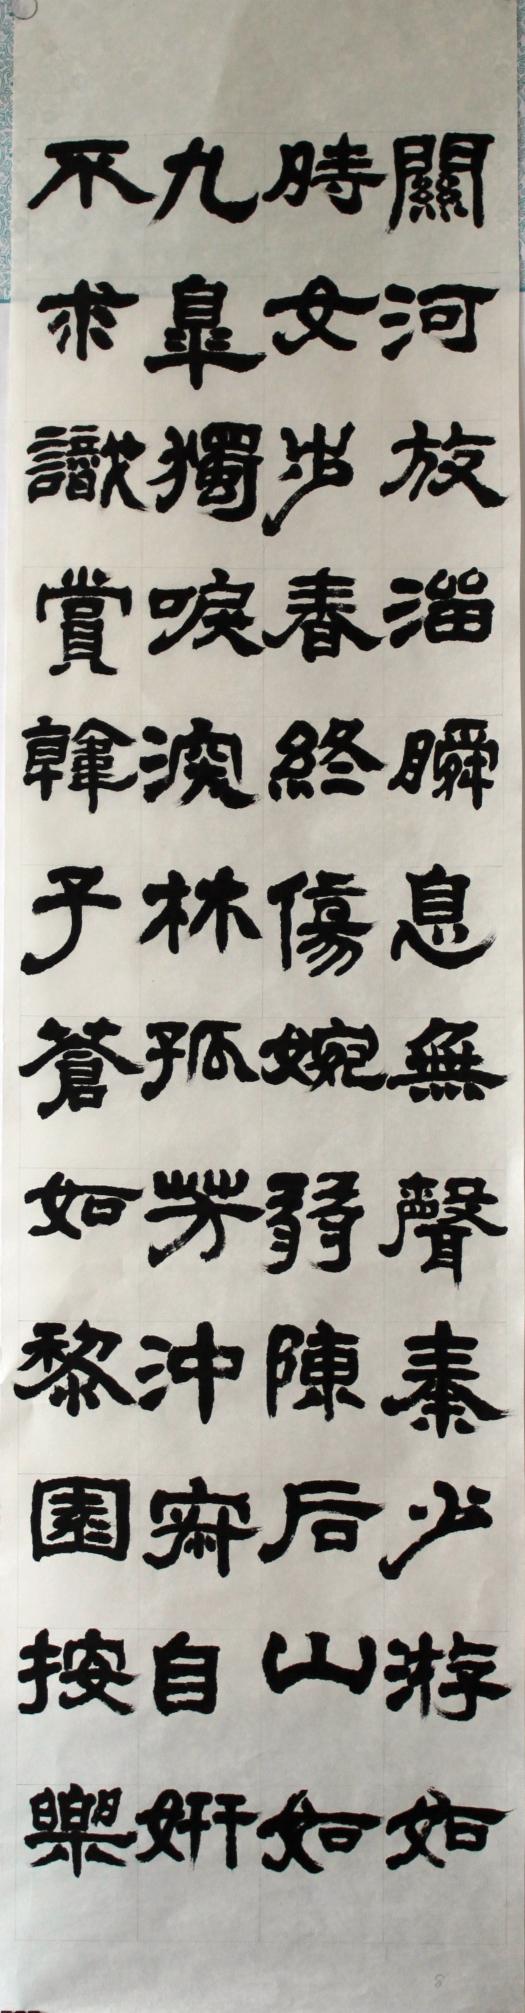 關河放淄瞬息無聲秦少游如
時女步春終傷婉弱陳后山如
九皋獨唳深林孤芳沖寂自姸
不求識賞韓子蒼如黎園按樂
8